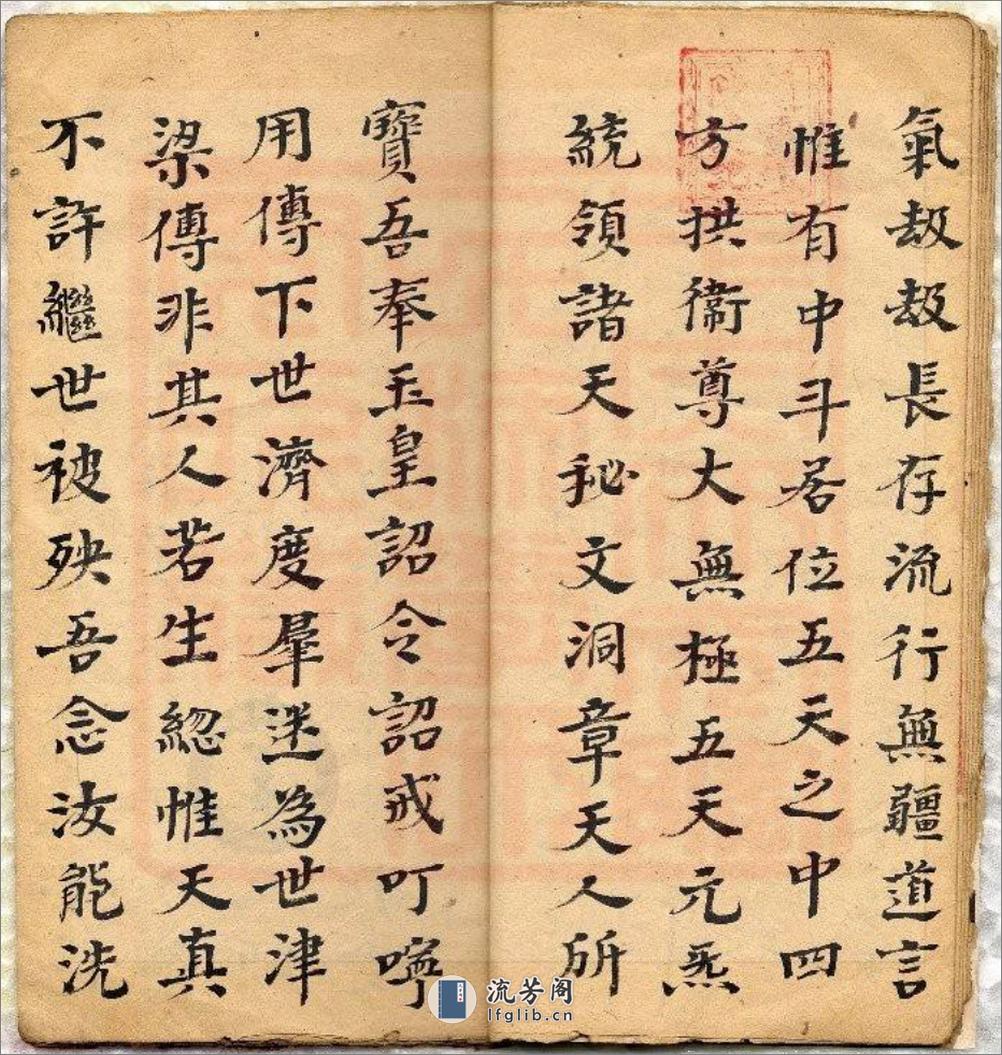 氣刼刼長存流行無疆道言
惟有中斗居位五天之中四
方拱衛尊大無極五天元炁
統領諸天秘文洞章天人所
寶吾奉玉皇詔令詔戒叮嚀
用傳下世濟度羣迷為世津
梁傳非其人若生緫惟天真
不許繼世被殃吾念汝能洗
流芳阁
lfglib.cn